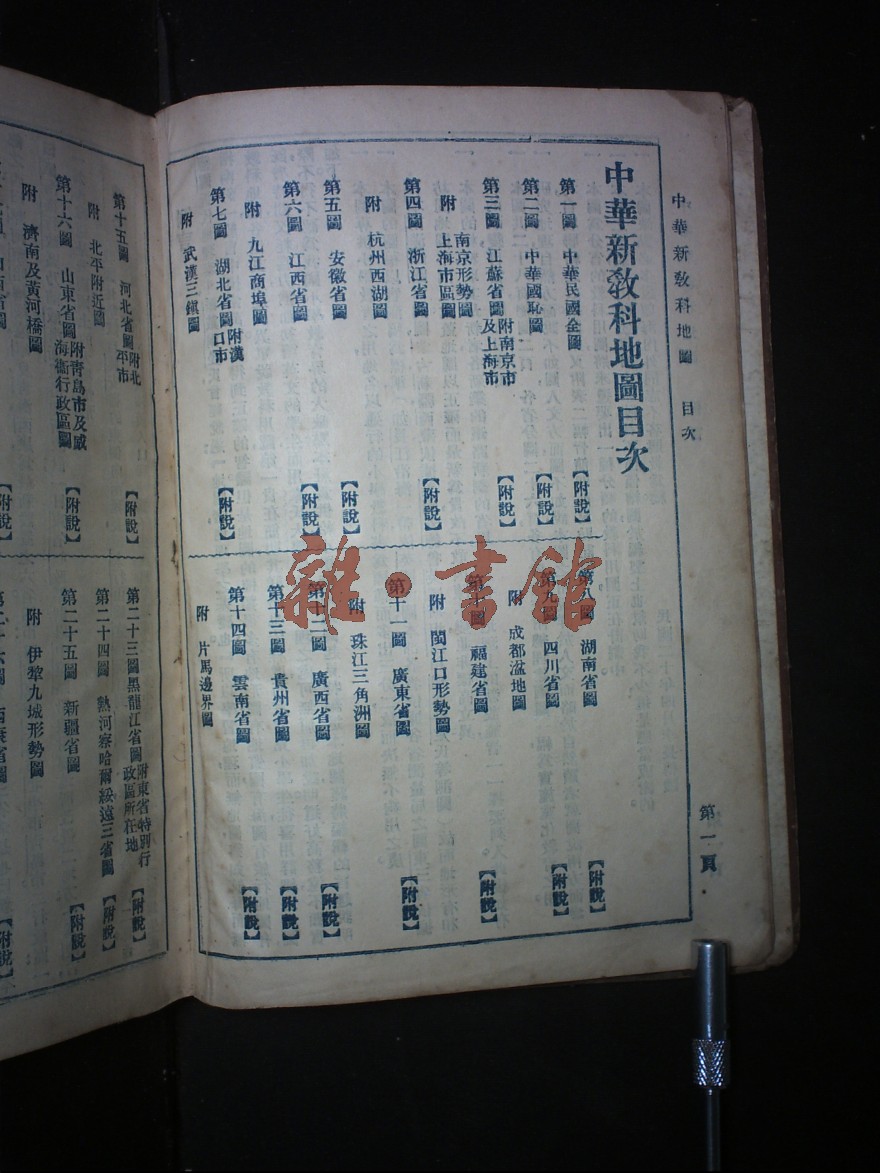 中華新敎科地圖 目次
第一頁
中華新敎科地圖目次
第一圖 中華民國全圖 【附說】
第二圖 中華國恥圖 【附說】
第三圖 江蘇省圖 附南京市及上海市 【附說】
附 南京形勢圖 上海市區圖
第四圖 浙江省圖 【附說】
附 杭州西湖圖
第五圖 安徽省圖 【附說】
第六圖 江西省圖 【附說】
附 九江商埠圖
第七圖 湖北省圖 附漢口市 【附說】
附 武漢三鎮圖
第八圖 湖南省圖 【附說】
第九圖 四川省圖 【附說】
附 成都盆地圖
第十圖 福建省圖 【附說】
附 閩江口形勢圖
第十一圖 廣東省圖 【附說】
附 珠江三角洲圖
第十二圖 廣西省圖 【附說】
第十三圖 貴州省圖 【附說】
第十四圖 雲南省圖 【附說】
附 片馬邊界圖
第十五圖 河北省圖 附北平市 【附說】
附 北平附近圖
第十六圖 山東省圖 附靑島市及威海衞行政區圖 【附說】
附 濟南及黃河橋圖
【附說】
第二十三圖 黑龍江省圖 附東省特別行政區所在地 【附說】
第二十四圖 熱河察哈爾綏遠三省圖 【附說】
第二十五圖 新疆省圖 【附說】
附 伊犂九城形勢圖
【附說】
雜·書館